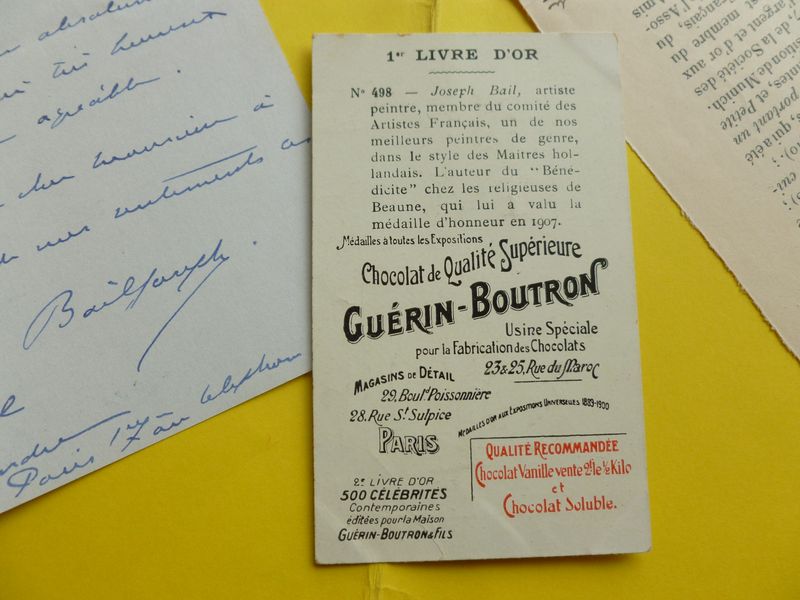 absolument
très heureux
agréable.
cher monsieur à
mes sentements
Bail Joseph.
Paris 17
1er LIVRE D'OR
No 498 — Joseph Bail, artiste
peintre, membre du comité des
Artistes Français, un de nos
meilleurs peintres de genre,
dans le style des Maitres hol-
landais. L'auteur du "Béné-
dicite" chez les religieuses de
Beaune, qui lui a valu la
médaille d'honneur en 1907.
Médailles à toutes les Expositions
Chocolat de Qualité Supérieure
GUÉRIN-BOUTRON
Usine Spéciale
pour la Fabrication des Chocolats
23 & 25, Rue du Maroc
MAGASINS DE DÉTAIL
29, Boul.d Poissonnière
28, Rue St Sulpice
PARIS
MÉDAILLES D'OR AUX EXPOSITIONS UNIVERSELLES 1889-1900
QUALITÉ RECOMMANDÉE
Chocolat Vanille vente 2f le ½ Kilo
et
Chocolat Soluble.
2e LIVRE D'OR
500 CÉLÉBRITÉS
Contemporaines
éditées pour la Maison
GUÉRIN-BOUTRON & FILS
l'Asso-
Français, du
et membre du
d'argent et d'or aux
de la Société des
sition de Munich.
et Petite
portant un
qui a été